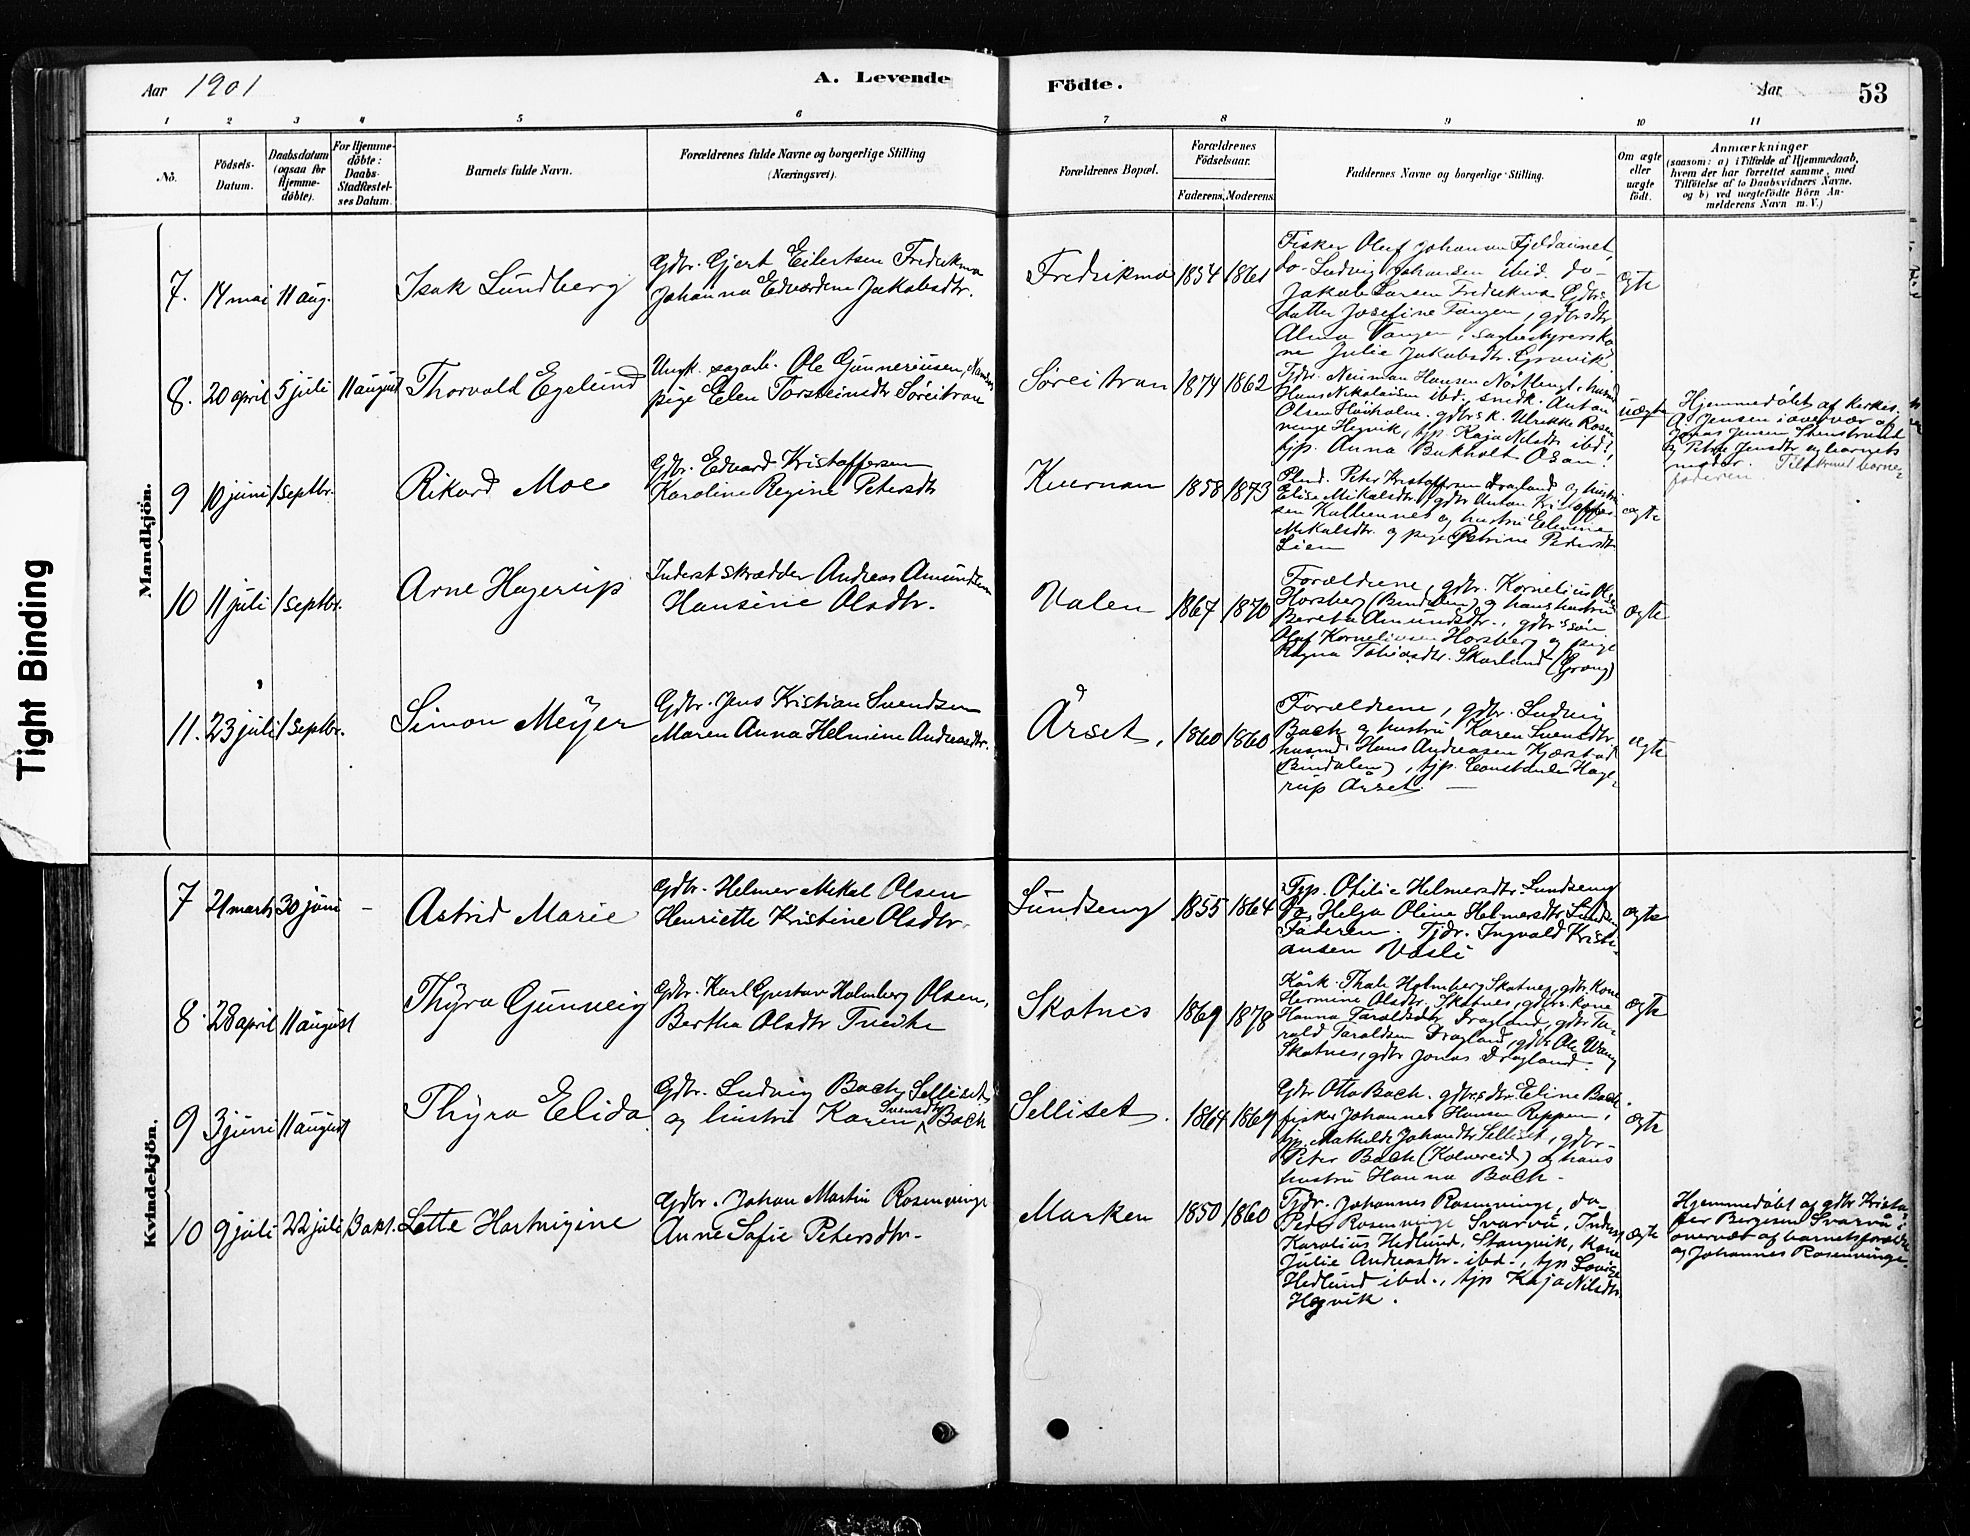 Aar 1901
A. Levende
Födte.
Aar
53
1 2 3 4 5 6 7 8 9 10 11
No.
Födsels-
Datum.
Daabsdatum
(ogsaa for
Hjemme-
döbte).
For Hjemme-
döbte:
Daabs-
Stadfæstel-
ses Datum.
Barnets fulde Navn.
Forældrenes fulde Navne og borgerlige Stilling
(Næringsvei).
Forældrenes Bopæl.
Forældrenes
Födselsaar.
Faderens. Moderens.
Faddernes Navne og borgerlige Stilling.
Om ægte
eller
uægte
födt.
Anmærkninger
(saasom: a) i Tilfælde af Hjemmedaab,
hvem der har forrettet samme, med
Tilföielse af to Daabsvidners Navne,
og b) ved uægtefödte Börn An-
melderens Navn m. V.)
Tight Binding
Mandkjön.
7. 14 mai 11 aug.
Isak Lundberg
Gdbr. Gjert Eilertsen Fredriksmo
Johanna Edvardine Jakobsdtr.
Fredriksmo 1854 1861
Fisker Oluf Johansen Fjeldavnet,
do- Ludvig Johansen ibid. do-
Jakob Larsen Fredriksmo Gdbr.
datter Josefine Tangen, gdbrsdtr
Alma Tangen, sagbestyrersko
ne Julie Jakobsdtr. Gravvik
ægte
8. 20 april 5 juli 11 august
Thorvald Egelund
Ungk. sagarb. Ole Gunneriusen, Namsos
pige Elen Torsteinsdtr Söreitran
Söreitran 1874 1862
Tjdr. Neuman Hansen
Hans Nikolaisen ibd. smdk. Anton
Olsen Höiholm. gdbrsk. Ulrikke Rosen
vinge Hegvik, tjp. Kaja Nilsdtr ibd.,
tjp. Anna Bukholt Osan.
uægte
Hjemmedöbt af kirkes.
A. Jensen i overvær af
Jonas Jensen
og Petra Jensdtr og barnets
moder. Tilstrand barne-
faderen.
9 10 juni 1 septbr.
Rikard Moe
Gdbr. Edvard Kristoffersen
Karoline Regine Petersdtr
Kvernan 1858 1873
Peter Kristoffersen Dragland og hustru
Elise Mikalsdtr, gdbr Anton Kristoffer-
sen Kalhennes og hustru Elevine
Mikalsdtr. og pige Petrine Pedersdtr
Lien
ægte
10 11 juli 1 septbr.
Arne Hagerup
Inderst skrædder Andreas Amundsen
Hansine Olsdtr.
Valen 1867 1870
Forældrene, gdbr. Kornelius Olsen
Horsberg (Bindalen) og hans hustru
Beretha Amundsdtr., gdbrs sön
Olaf Korneliusen Horsberg og pige
Ragna Tobiasdtr. Skarland (Grong)
ægte
11. 23 juli 1 septbr.
Simon Meyer
Gdbr. Jens Kristian Svendsen
Maren Anna Helmine Andreasdtr.
Årset, 1860 1860
Forældrene, gdbr. Ludvig
Bach og hustru Karen Svensdtr
husmd. Hans Andreasen Kjærstad
(Bindalen), tjp. Constanse Hage-
rup Årset.
ægte
Kvindekjön.
7 21 marts 30 juni -
Astrid Marie
Gdbr. Helmer Mikal Olsen
Henriette Kristine Olsdtr.
Sundseng 1855 1864
Tjp. Otilie Helmersdtr. Sundseng
Do. Helga Oline Helmersdtr Sundsen
Faderen. Tjdr. Ingvald Kristi-
ansen Vasli
ægte
8. 28 april 11 august
Thyra Gunveig
Gdbr. Karl Gustav Holmberg Olsen,
Bertha Olsdtr Tvedte
Skotnes 1869 1878
Kårk. Thale Holmberg Skotnes, gdbr. kone
Hermine Olsdtr. Skotnes, gdbr. kone
Hanna Taraldsdtr Dragland, gdbr Ta-
rald Taraldsen Dragland, gdbr. Ole Wang
Skotnes, gdbr Jonas Dragland.
ægte
9 3 juni 11 august
Thyra Elida
Gdbr. Ludvig Bach, Selliset,
og hustru Karen Svensdtr Bach
Selliset. 1864 1869
Gdbr Otto Bach. gdbrsdtr. Eline Bach
fisker Johannes Hansen Reppen,
tjp. Mathilde Johansdtr Selliset, gdbr.
Peter Bach (Kolvereid) og hans
hustru Hanna Bach.
ægte
10 9 juli 22 juli 13 okt.
Lotte Hartvigine
Gdbr. Johan Martin Rosenvinge
Anne Sofie Petersdtr.
Marken 1850 1860
Tjdr. Johannes Rosenvinge, do-
Peder Rosenvinge Svarvå, Inderst
Karolius Hedlund, Stangvik, kone
Julie Andreasdtr. ibd., tjp Lovise
Hedlund ibd., tjp Kaja Nilsdtr.
Hegvik.
ægte
Hjemmedöbt af gdbr Kristof-
fer Bergesen Svarvå i
overvæt af barnets foræld
og Johannes Rosenvinge.